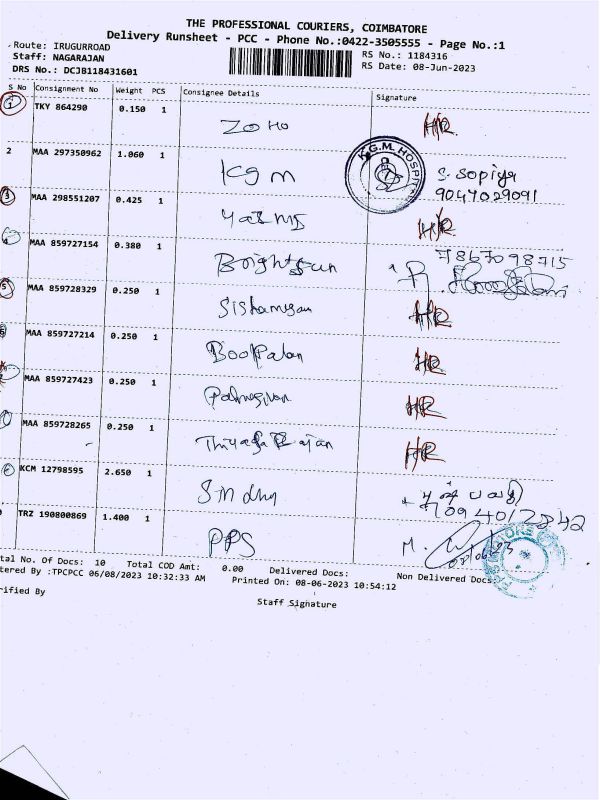 THE PROFESSIONAL COURIERS, COIMBATORE
Delivery Runsheet - PCC - Phone No.:0422-3505555 - Page No.:1
Route: IRUGURROAD
RS No.: 1184316
Staff: NAGARAJAN
RS Date: 08-Jun-2023
DRS No.: DCJB118431601
S No Consignment No Weight PCS Consignee Details Signature
1 TKY 864290 0.150 1 ZOHO HR
2 MAA 297350962 1.060 1 KGM K.G.M. HOSPITAL S. Sopiya
9047029091
3 MAA 298551207 0.425 1 HR
4 MAA 859727154 0.380 1 Brightsun 7867098715
5 MAA 859728329 0.250 1 HR
6 MAA 859727214 0.250 1 HR
MAA 859727423 0.250 1 HR
MAA 859728265 0.250 1 HR
KCM 12798595 2.650 1
TRZ 190800869 1.400 1 PPS M.
tal No. Of Docs: 10 Total COD Amt: 0.00 Delivered Docs: Non Delivered Docs:
tered By :TPCPCC 06/08/2023 10:32:33 AM Printed On: 08-06-2023 10:54:12
rified By
Staff Signature